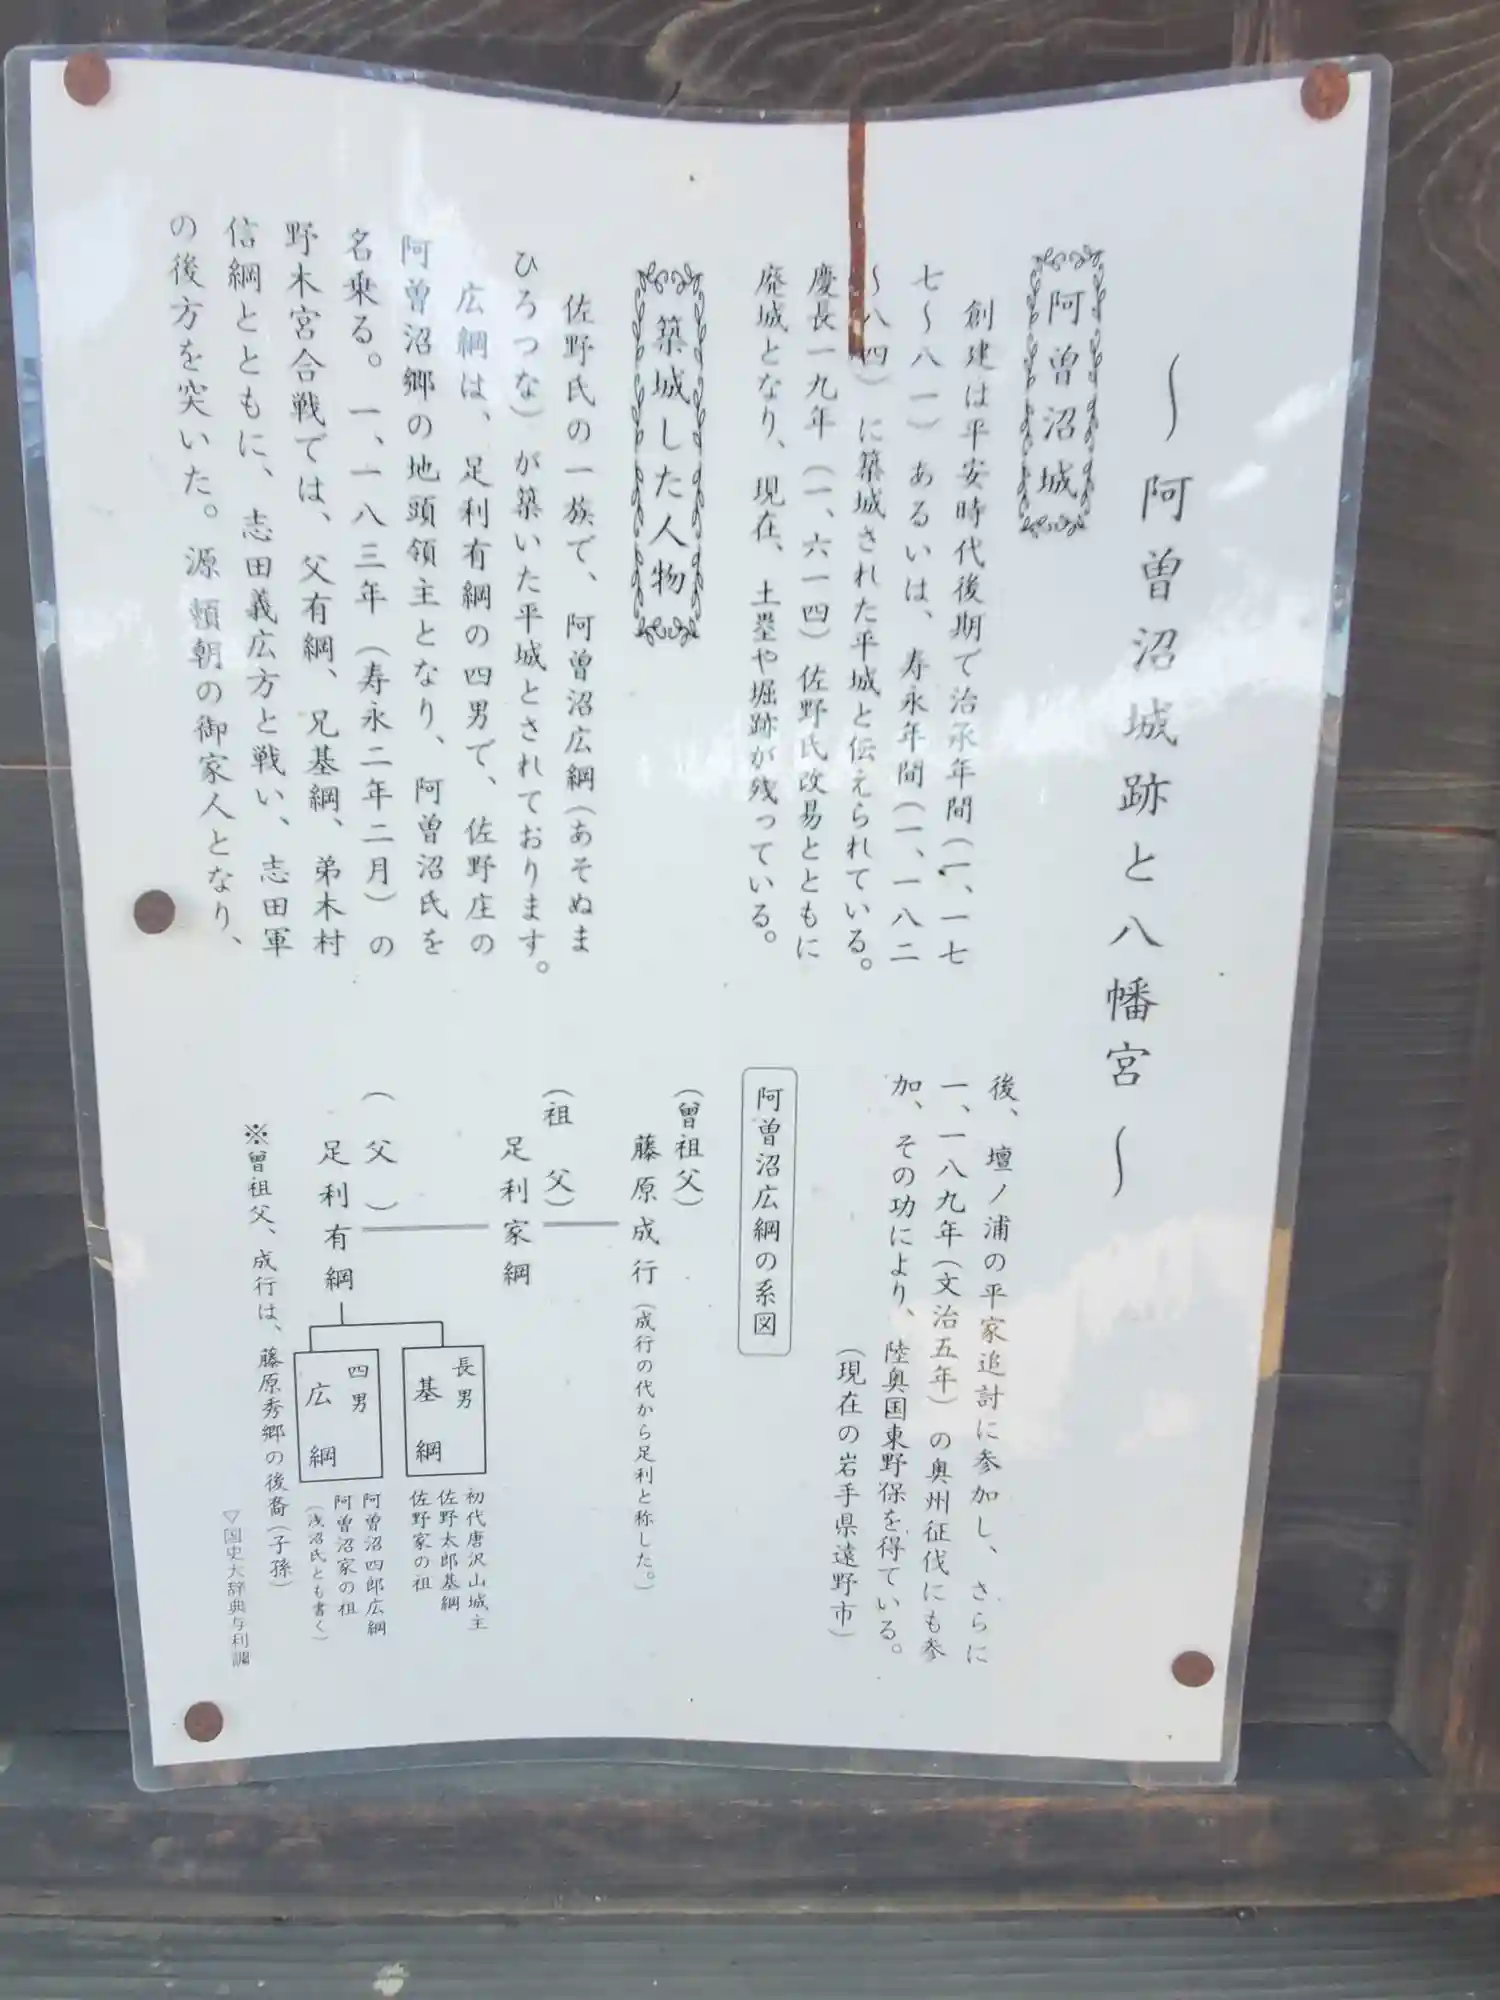 ～阿曽沼城跡と八幡宮～
阿曽沼城
創建は平安時代後期で治承年間(一、一七
七～八一)あるいは、寿永年間(一、一八二
～八四)に築城された平城と伝えられている。
慶長一九年(一、六一四)佐野氏改易とともに
廃城となり、現在、土塁や堀跡が残っている。
築城した人物
佐野氏の一族で、阿曽沼広綱(あそぬま
ひろつな)が築いた平城とされております。
広綱は、足利有綱の四男で、佐野庄の
阿曽沼郷の地頭領主となり、阿曽沼氏を
名乗る。一、一八三年(寿永二年二月)の
野木宮合戦では、父有綱、兄基綱、弟木村
信綱とともに、志田義広方と戦い、志田軍
の後方を突いた。源頼朝の御家人となり、
後、壇ノ浦の平家追討に参加し、さらに
一、一八九年(文治五年)の奥州征伐にも参
加、その功により、陸奥国東野保を得ている。
(現在の岩手県遠野市)
阿曽沼広綱の系図
(曾祖父)
藤原成行(成行の代から足利と称した。)
(祖父)
足利家綱
(父)
足利有綱
長男
基綱
初代唐沢山城主
佐野太郎基綱
佐野家の祖
四男
広綱
阿曽沼四郎広綱
阿曽沼家の祖
(浅沼氏とも書く)
※曾祖父、成行は、藤原秀郷の後裔(子孫)
▽国史大辞典与利調